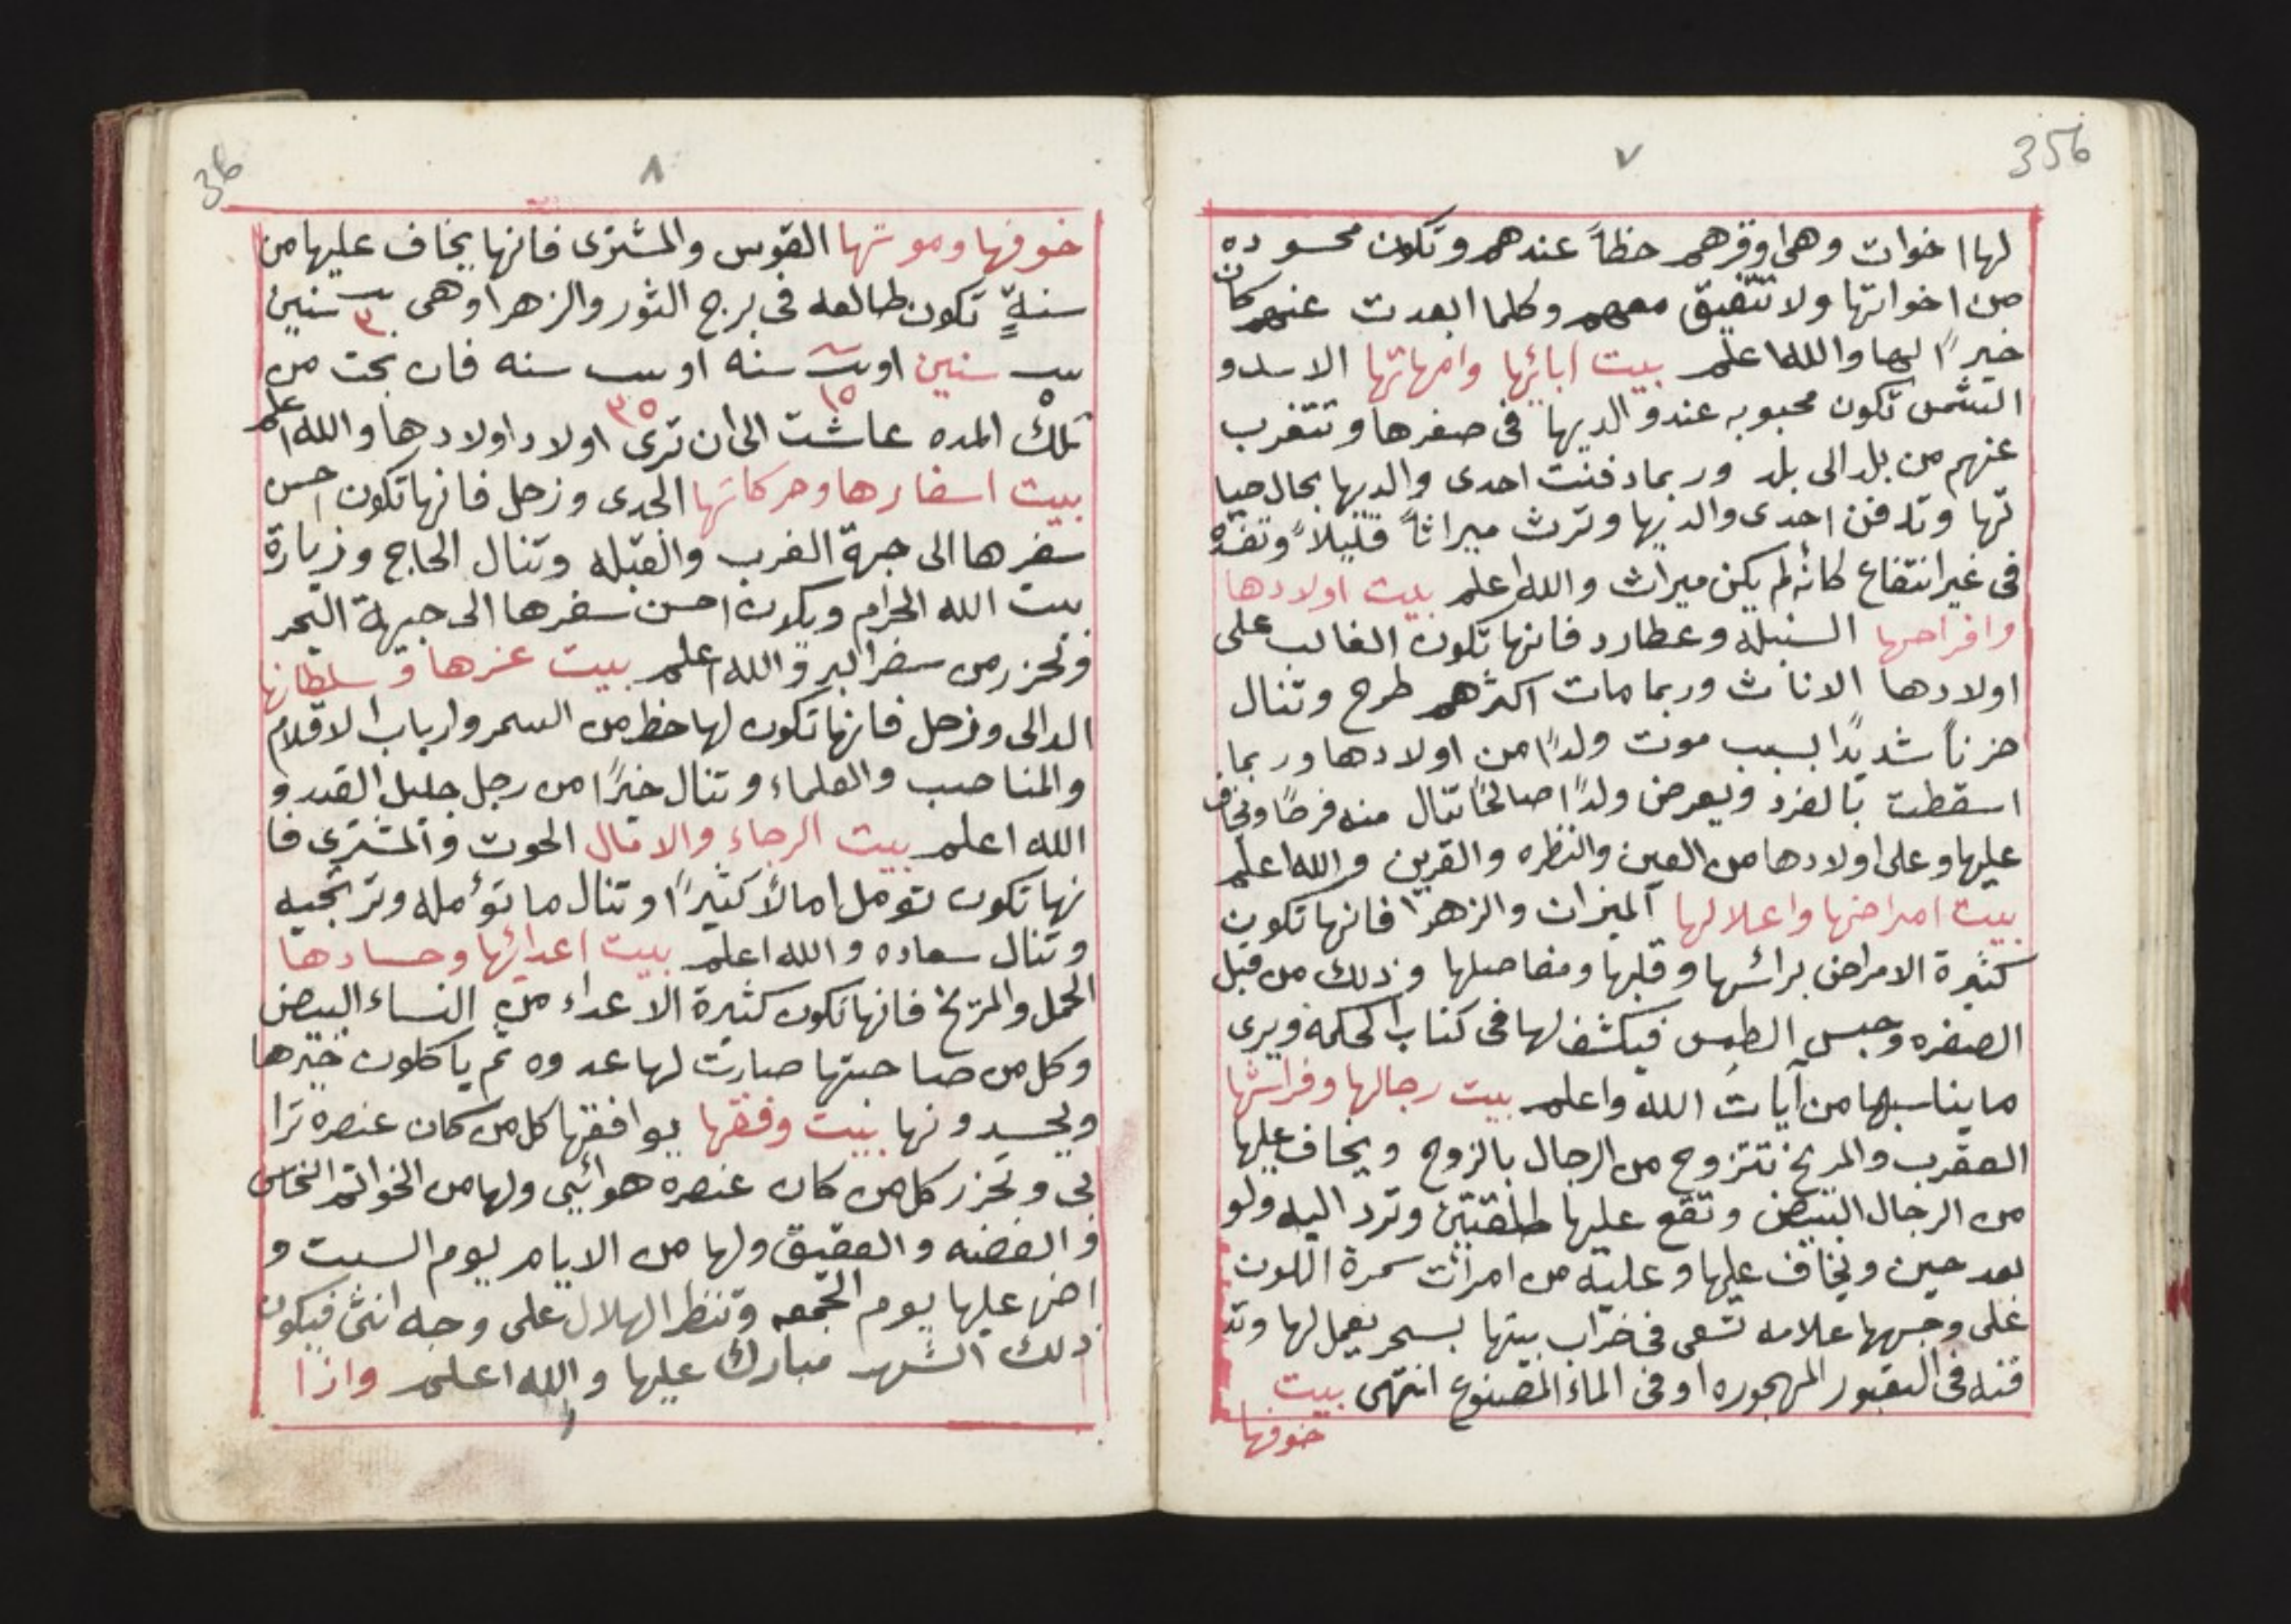 356
٧
لها اخوات وهى اوفرهم حظاً عندهم وتكون محسوده
من اخواتها ولا تتفيق معهم وكلما ابعدت عنهم كان
خيرًا لها والله اعلم بيت ابائها وامهاتها الاسد و
الشمس تكون محبوبه عند والديها فى صغرها وتتغرب
عنهم من بلد الى بلد وربما دفنت احدى والديها بحال حيا
تها وتدفن احدى والديها وترث ميراثاً قليلاً وتفنه
فى غير انتفاع كانه لم يكن ميراث والله اعلم بيت اولادها
وافراحها السنبله وعطارد فانها تكون الغالب على
اولادها الاناث وربما مات اكثرهم طرح وتنال
حزناً شديدًا بسبب موت ولدًا من اولادها وربما
اسقطت بالفرد ويعرض ولدًا صالحًا تنال منه فرحًا ويخاف
عليها وعلى اولادها من العين والنظره والقرين والله اعلم
بيت امراضها واعلالها الميزان والزهرا فانها تكون
كثيرة الامراض برائسها وقلبها ومفاصلها وذلك من قبل
الصفره وحبس الطمس فيكشف لها فى كتاب الحكمه ويرى
ما يناسبها من آيات الله واعلم بيت رجالها وفراشها
العقرب والمريخ تتزوج من الرجال بالزوج ويخاف عليها
من الرجال البيض وتقع عليها طلقتين وترد اليه ولو
بعد حين ويخاف عليها وعليه من امرأت سمرة اللون
على وجهها علامه تسعى فى خراب بيتها بسحر يعمل لها وتد
فنه فى القبور المهجوره او فى الماء المصنوع انتهى بيت
خوفها
36
٨
خوفها وموتها القوس والمشترى فانها يخاف عليها من
سنةٍ تكون طالعه فى برج الثور والزهرا وهى سنين
٣
سنين او سنه او سنه فان نجت من
٥ ١٥ ٣٥
تلك المده عاشت الى ان ترى اولاد اولادها والله اعلم
بيت اسفارها وحركاتها الجدى وزحل فانها تكون احسن
سفرها الى جهة الغرب والقبله وتنال الحاج وزيارة
بيت الله الحرام ويكون احسن سفرها الى جيهة البحر
وتحزر من سفر البر والله اعلم بيت عزها وسلطانها
الدالى وزحل فانها تكون لها حظ من السمر وارباب الاقلام
والمناصب والعلماء وتنال خيرًا من رجل جليل القدر و
الله اعلم بيت الرجاء والامال الحوت والمشترى فا
نها تكون تومل امالاً كثيرًا وتنال ما تؤمله وترتجيه
وتنال سعاده والله اعلم بيت اعدائها وحسادها
الحمل والمريخ فانها تكون كثيرة الاعداء من النساء البيض
وكل من صاحبتها صارت لها عدوه ثم ياكلون خيرها
ويحسدونها بيت وفقها يوافقها كل من كان عنصره ترا
بى وتحزر كل من كان عنصره هوائيى ولها من الخواتم النحاس
والفضه والعقيق ولها من الايام يوم السبت و
اضر عليها يوم الجمعه وتنظر الهلال على وجه انثى فيكون
ذلك الشهر مبارك عليها والله اعلم واذا